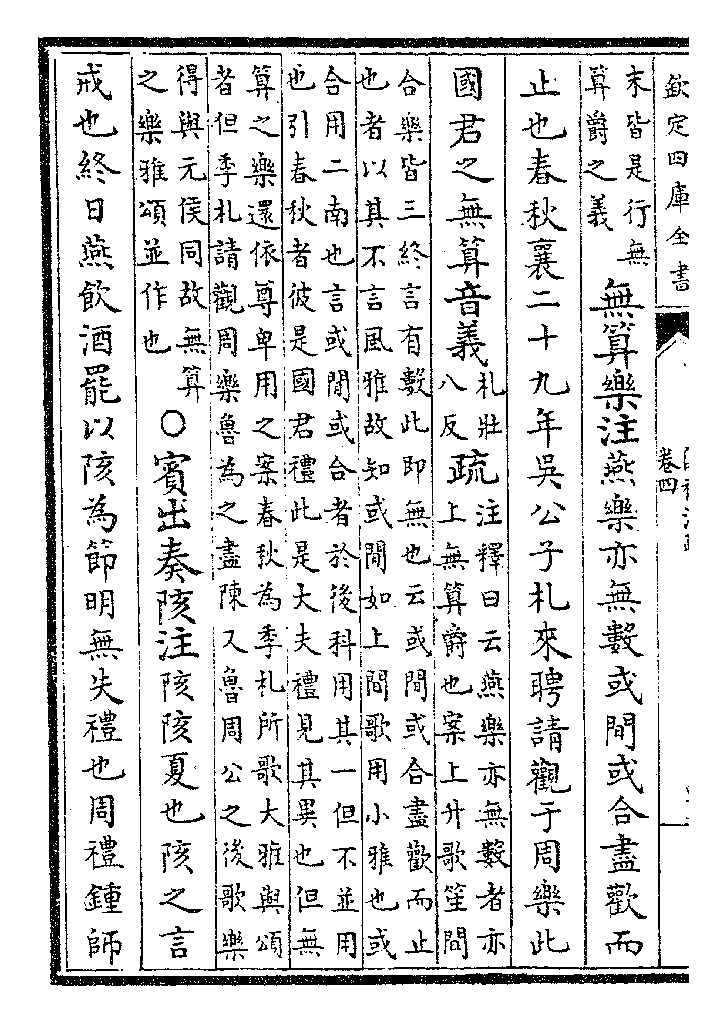 欽定四庫全書
卷四
末皆是行無
算爵之義
無算樂注燕樂亦無數或間或合盡歡而
止也春秋襄二十九年吳公子札來聘請觀于周樂此
國君之無算音義
札壯
八反
疏
注釋曰云燕樂亦無數者亦
上無算爵也案上升歌笙間
合樂皆三終言有數此即無也云或間或合盡歡而止
也者以其不言風雅故知或間如上間歌用小雅也或
合用二南也言或間或合者於後科用其一但不並用
也引春秋者彼是國君禮此是大夫禮見其異也但無
算之樂還依尊卑用之案春秋為季札所歌大雅與頌
者但季札請觀周樂魯為之盡陳又魯周公之後歌樂
得與元侯同故無算
之樂雅頌並作也
○賓出奏陔注陔陔夏也陔之言
戒也終日燕飲酒罷以陔為節明無失禮也周禮鍾師